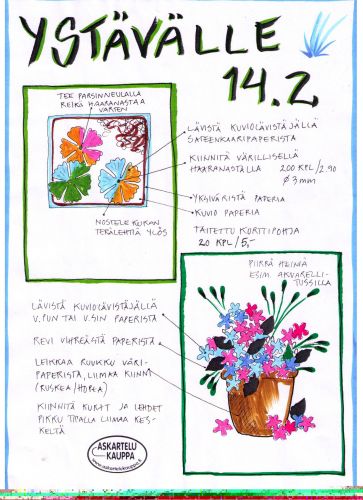 YSTÄVÄLLE
14.2.
TEE PARSINNEULALLA
REIKÄ HAARANASTAA
VARTEN
LÄVISTÄ KUVIOLÄVISTÄJÄLLÄ
SATEENKAARIPAPERISTA
KIINNITÄ VÄRILLISELLÄ
HAARANASTALLA 200 KPL/2.90
Ø 3mm
YKSIVÄRISTÄ PAPERIA
KUVIO PAPERIA
NOSTELE KUKAN
TERÄLEHTIÄ YLÖS
TAITETTU KORTTIPOHJA
20 KPL/5,-
PIIRRÄ HEINIÄ
ESIM. AKVARELLI-
TUSSILLA
LÄVISTÄ KUVIOLÄVISTÄJÄLLÄ
V.PUN TAI V.SIN PAPERISTA
REVI VIHREÄSTÄ PAPERISTA
LEIKKAA RUUKKU VÄRI-
PAPERISTA, LIIMAA KIINNI
(RUSKEA/HOPEA)
KIINNITÄ KUKAT JA LEHDET
PIKKU TIPALLA LIIMAA KES-
KELTÄ
ASKARTELU
KAUPPA